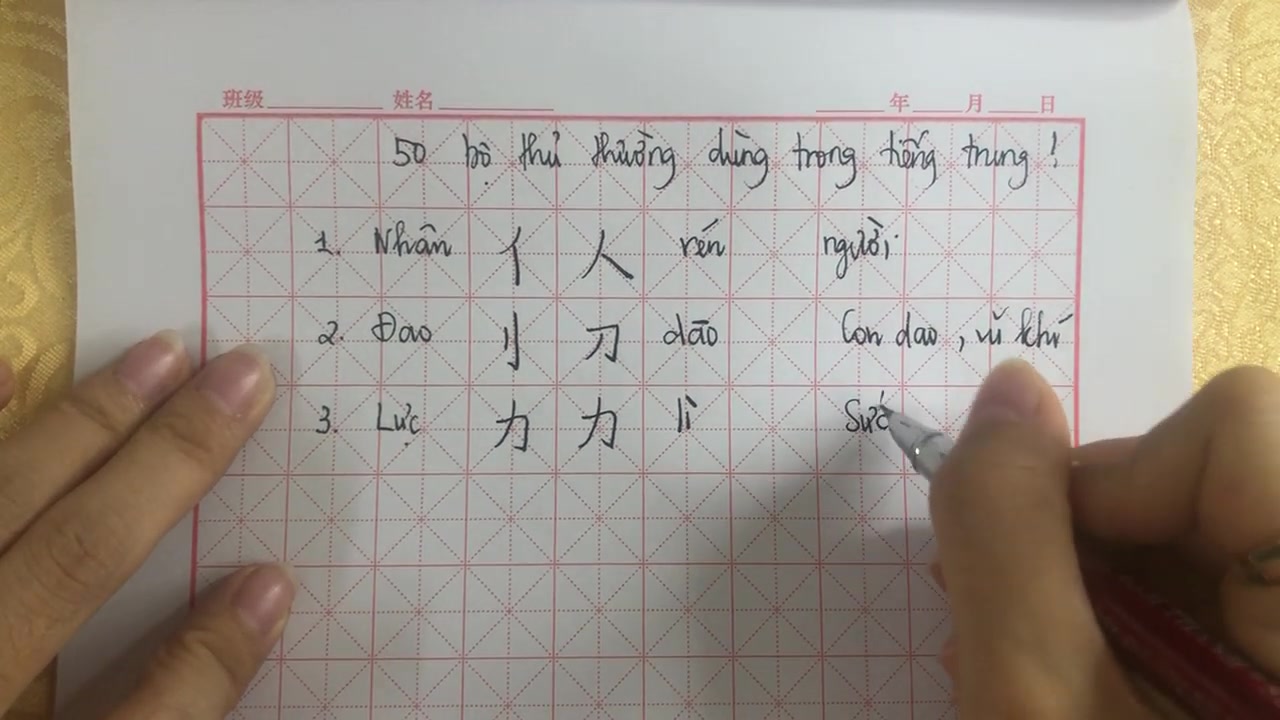 班级 姓名 年 月 日
50 bộ thủ thường dùng trong tiếng trung !
1. Nhân 亻 人 rén người
2. Đao 刂 刀 dāo Con dao , vũ khí
3. Lực 力 力 lì Sức